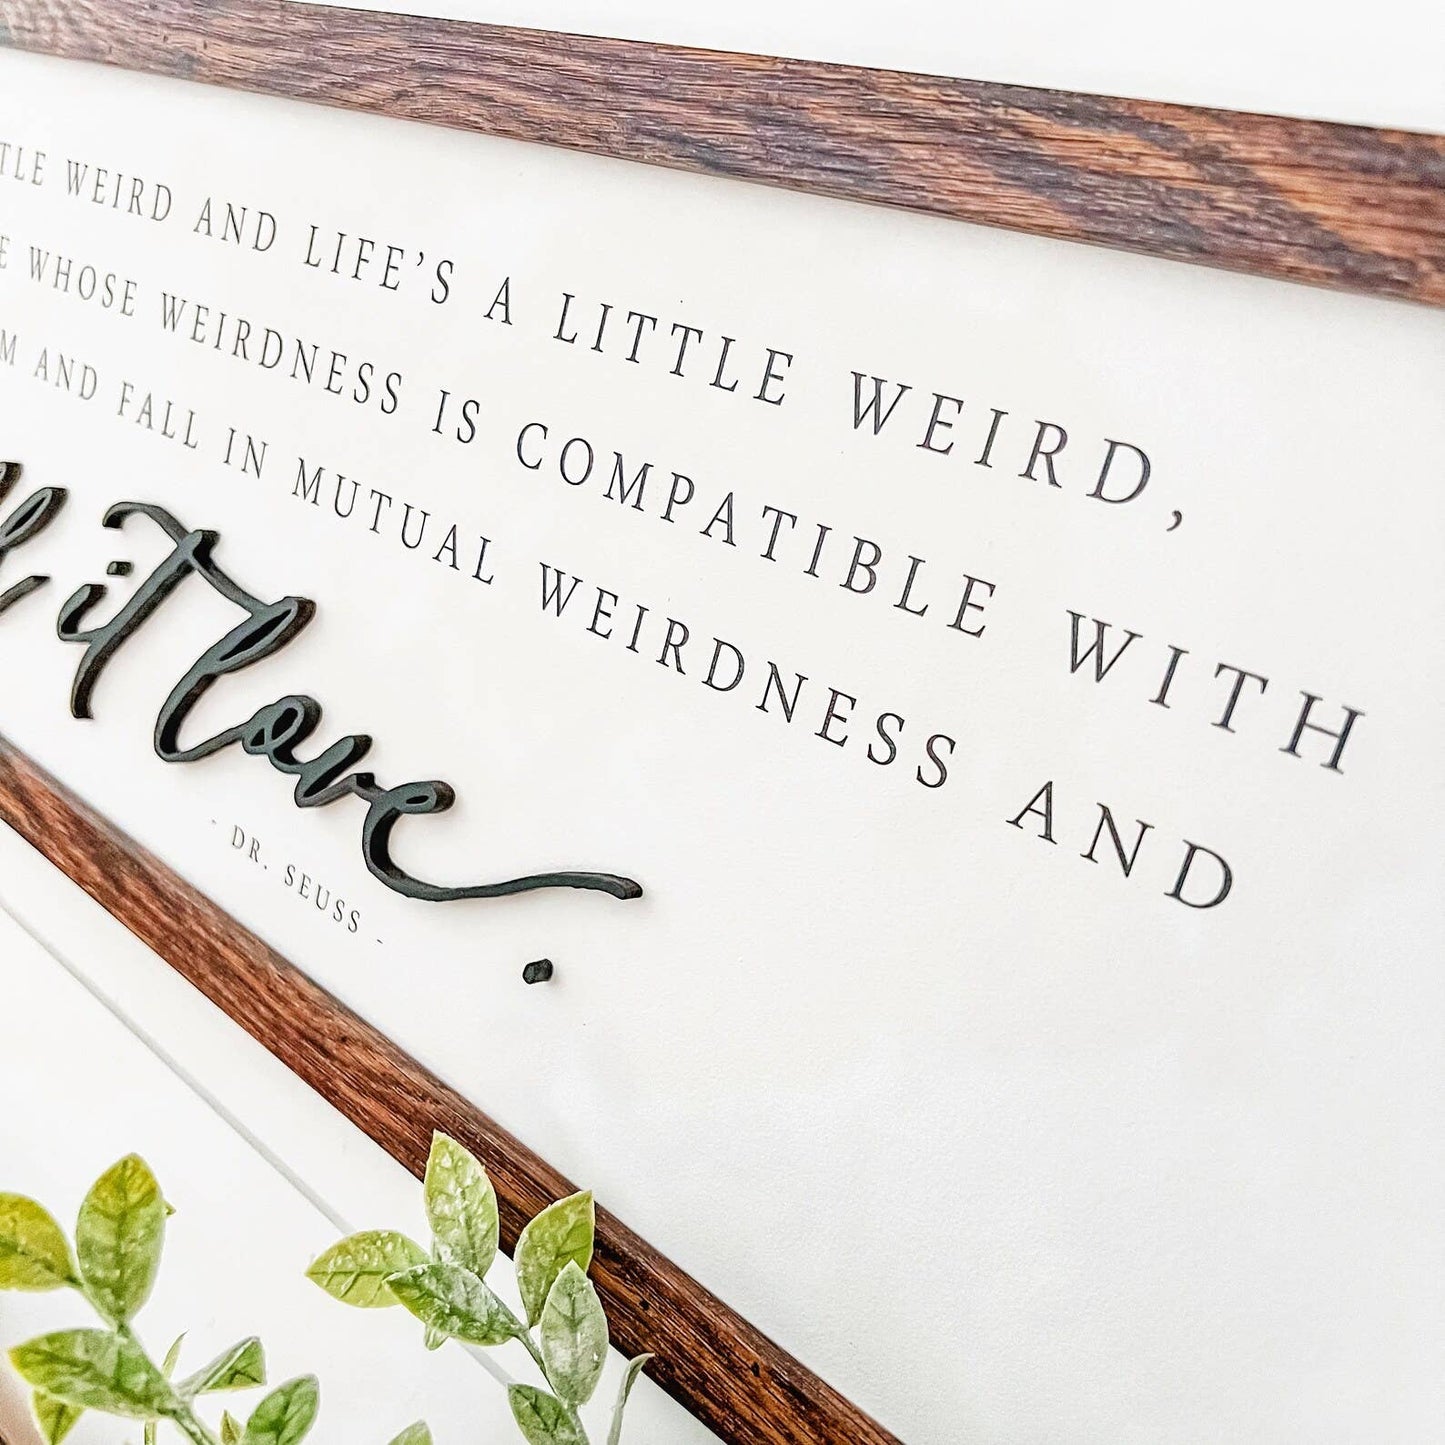 WEIRD AND LIFE'S A LITTLE WEIRD,
WHOSE WEIRDNESS IS COMPATIBLE WITH
AND FALL IN MUTUAL WEIRDNESS AND
it love.
- DR. SEUSS -